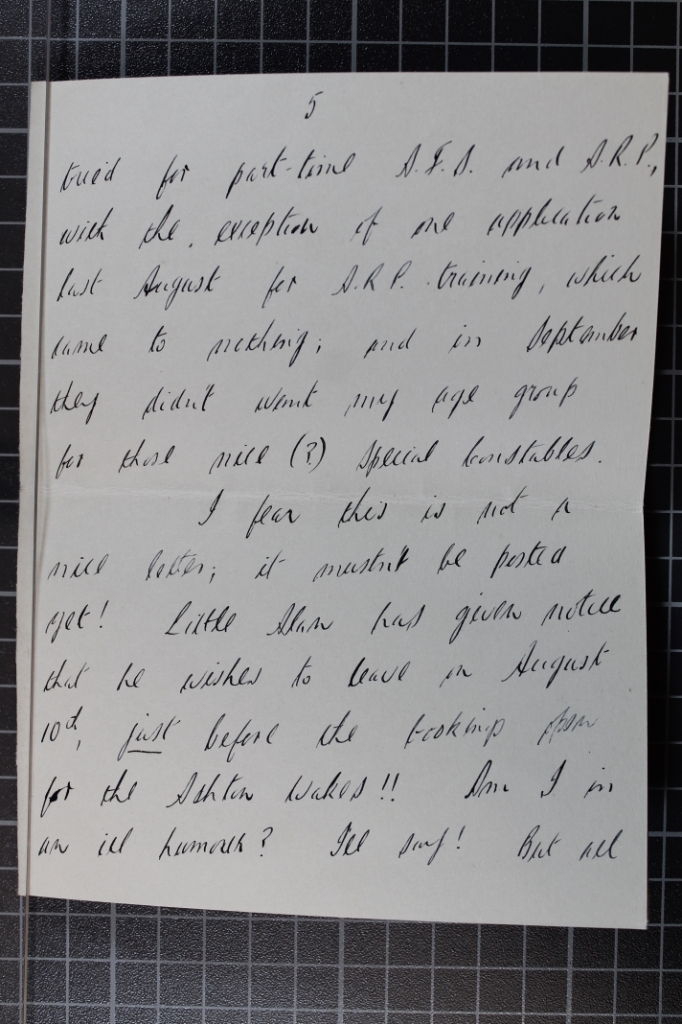 5
tried for part-time A.F.S. and A.R.P.,
with the exception of one application
last August for A.R.P. training, which
came to nothing; and in September
they didn't want my age group
for those nice (?) Special Constables.
I fear this is not a
nice letter; it mustn't be posted
yet! Little Alan has given notice
that he wishes to leave on August
10th, just before the bookings open
for the Ashton Wakes!! Am I in
an ill humour? I'll say! But all